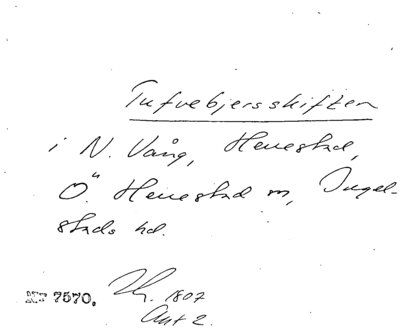 Tufvebjersskiften
i N. Vång, Henestad,
Ö. Henestad m, Ingel-
stads hd.
Nr 7570. 1807
Akt 2.